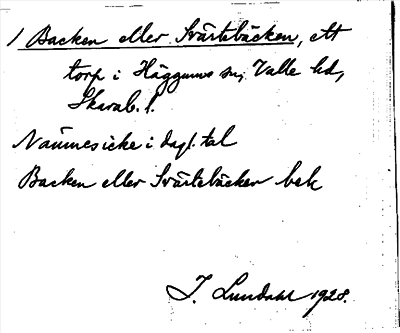 1 Backen eller Svärtebäcken, ett
torp i Häggums sn, Valle hd,
Skarab. l.
Nämnes icke i dagl. tal
Backen eller Svärtebäcken bek
J. Lundahl 1928.